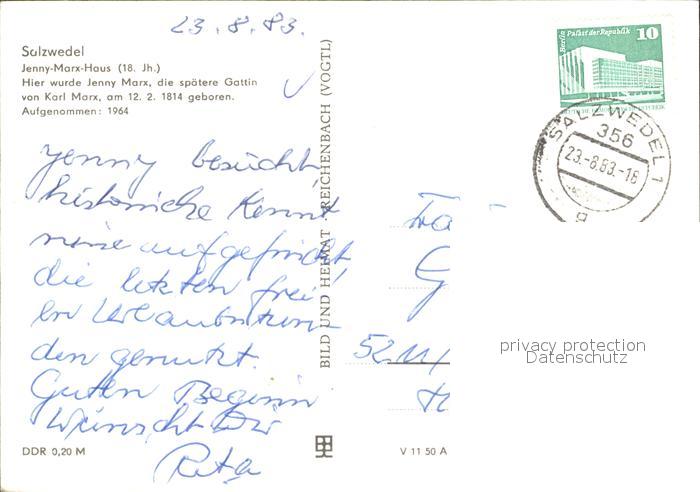 23.8.83.
Salzwedel
Jenny-Marx-Haus (18. Jh.)
Hier wurde Jenny Marx, die spätere Gattin
von Karl Marx, am 12. 2. 1814 geboren.
Aufgenommen: 1964
Jenny besucht,
historische Kennt
nisse aufgefrischt,
die letzten frei
en Urlaubsstun-
den genutzt.
Guten Beginn
wünscht Dir
Rita
DDR 0,20 M
BILD UND HEIMAT REICHENBACH (VOGTL)
V 11 50 A
Berlin Palast der Republik
10
SALZWEDEL 1
356
23.-8.83.-18
g
Fra
G
52111
privacy protection
Datenschutz